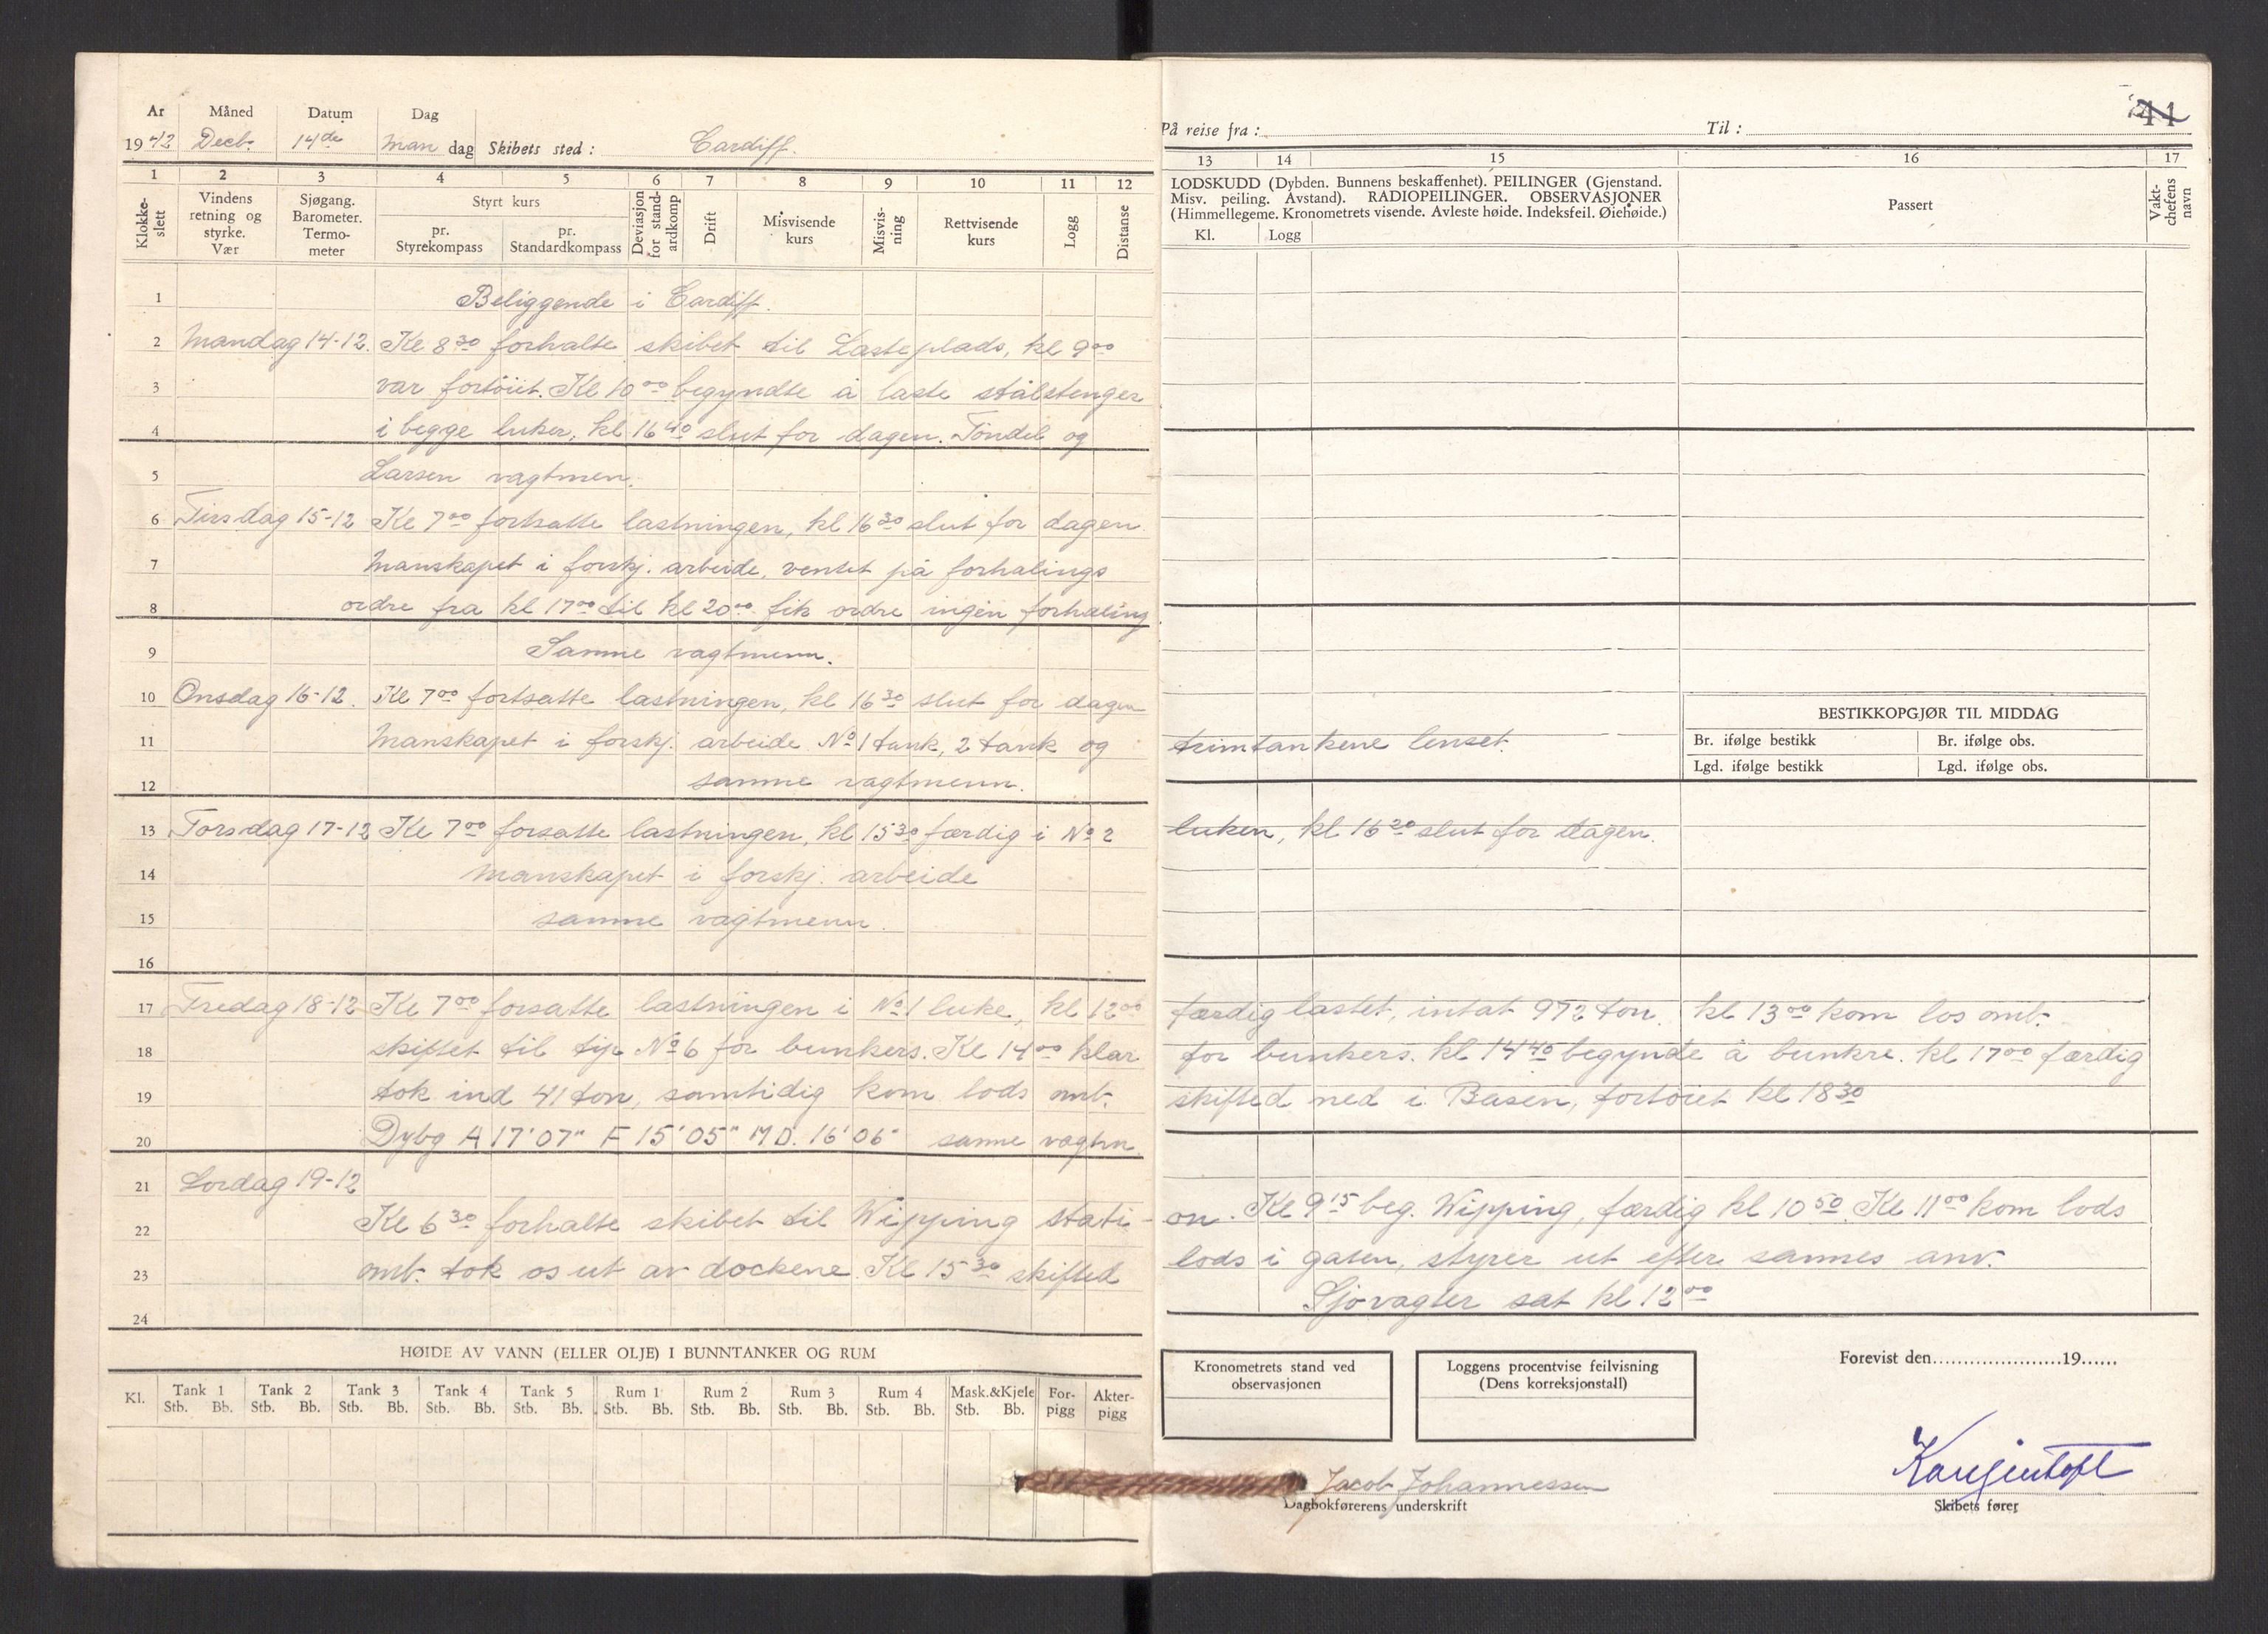 År Måned Datum Dag
1942 Decb. 14de Man dag Skibets sted: Cardiff.
1 2 3 4 5 6 7 8 9 10 11 12
Klokkeslett
Vindens retning og styrke. Vær
Sjøgang. Barometer. Termometer
Styrt kurs
pr. Styrekompass
pr. Standardkompass
Deviasjon for standardkomp
Drift
Misvisende kurs
Misvisning
Rettvisende kurs
Logg
Distanse
1 Beliggende i Cardiff.
2 Mandag 14-12. Kl 8 30 forhalte skibet til Lasteplads, kl 9 00
3 var fortöiet. Kl 10 00 begyndte å laste stålstenger
4 i begge luker, kl 16 40 slut for dagen. Töndel og
5 Larsen vagtmen.
6 Tirsdag 15-12 Kl 7 00 fortsatte lastningen, kl 16 30 slut for dagen.
7 Manskapet i forskj. arbeide, ventet på forhalings
8 ordre fra kl 17 00 til kl 20 00 fik ordre ingen forhaling
9 Samme vagtmenn.
10 Onsdag 16-12. Kl 7 00 fortsatte lastningen, kl 16 30 slut for dagen
11 Manskapet i forskj. arbeide No 1 tank, 2 tank og
12 samme vagtmenn.
13 Torsdag 17-12 Kl 7 00 forsatte lastningen, kl 15 30 færdig i No 2
14 Manskapet i forskj. arbeide
15 samme vagtmenn.
16
17 Fredag 18-12 Kl 7 00 forsatte lastningen i No 1 luke, kl 12 00
18 skiftet til tip No 6 for bunkers. Kl 14 00 klar
19 tok ind 41 ton, samtidig kom lods omb.
20 Dybg A 17'07" F 15'05" MD. 16'06" samme vagtm.
21 Lordag 19-12
22 Kl 6 30 forhalte skibet til Wipping stati-
23 omb. tok os ut av dockene. Kl 15 30 skifted
24
HØIDE AV VANN (ELLER OLJE) I BUNNTANKER OG RUM
Kl. Tank 1 Tank 2 Tank 3 Tank 4 Tank 5 Rum 1 Rum 2 Rum 3 Rum 4 Mask.&Kjele For-pigg Akter-pigg
Stb. Bb. Stb. Bb. Stb. Bb. Stb. Bb. Stb. Bb. Stb. Bb. Stb. Bb. Stb. Bb. Stb. Bb. Stb. Bb.
41
På reise fra : Til :
13 14 15 16 17
LODSKUDD (Dybden. Bunnens beskaffenhet). PEILINGER (Gjenstand.
Misv. peiling. Avstand). RADIOPEILINGER. OBSERVASJONER
(Himmellegeme. Kronometrets visende. Avleste høide. Indeksfeil. Øiehøide.)
Kl. Logg
Passert
Vakt-chefens navn
BESTIKKOPGJØR TIL MIDDAG
Br. ifølge bestikk Br. ifølge obs.
Lgd. ifølge bestikk Lgd. ifølge obs.
trimtankene lenset.
luken, kl 16 20 slut for dagen.
færdig lastet, intat 972 ton. kl 13 00 kom los omb.
for bunkers. kl 14 40 begynde å bunkre. kl 17 00 færdig
skifted ned i Basen, fortöiet kl 18 30
on. Kl 9 15 beg. Wipping, færdig kl 10 50 Kl 11 00 kom lods
lods i gaten, styrer ut efter sammes anv.
Sjövagter sat kl 12 00
Kronometrets stand ved observasjonen
Loggens procentvise feilvisning
(Dens korreksjonstall)
Forevist den......................19......
Jacob Johannessen
Dagbokførerens underskrift
Skibets fører